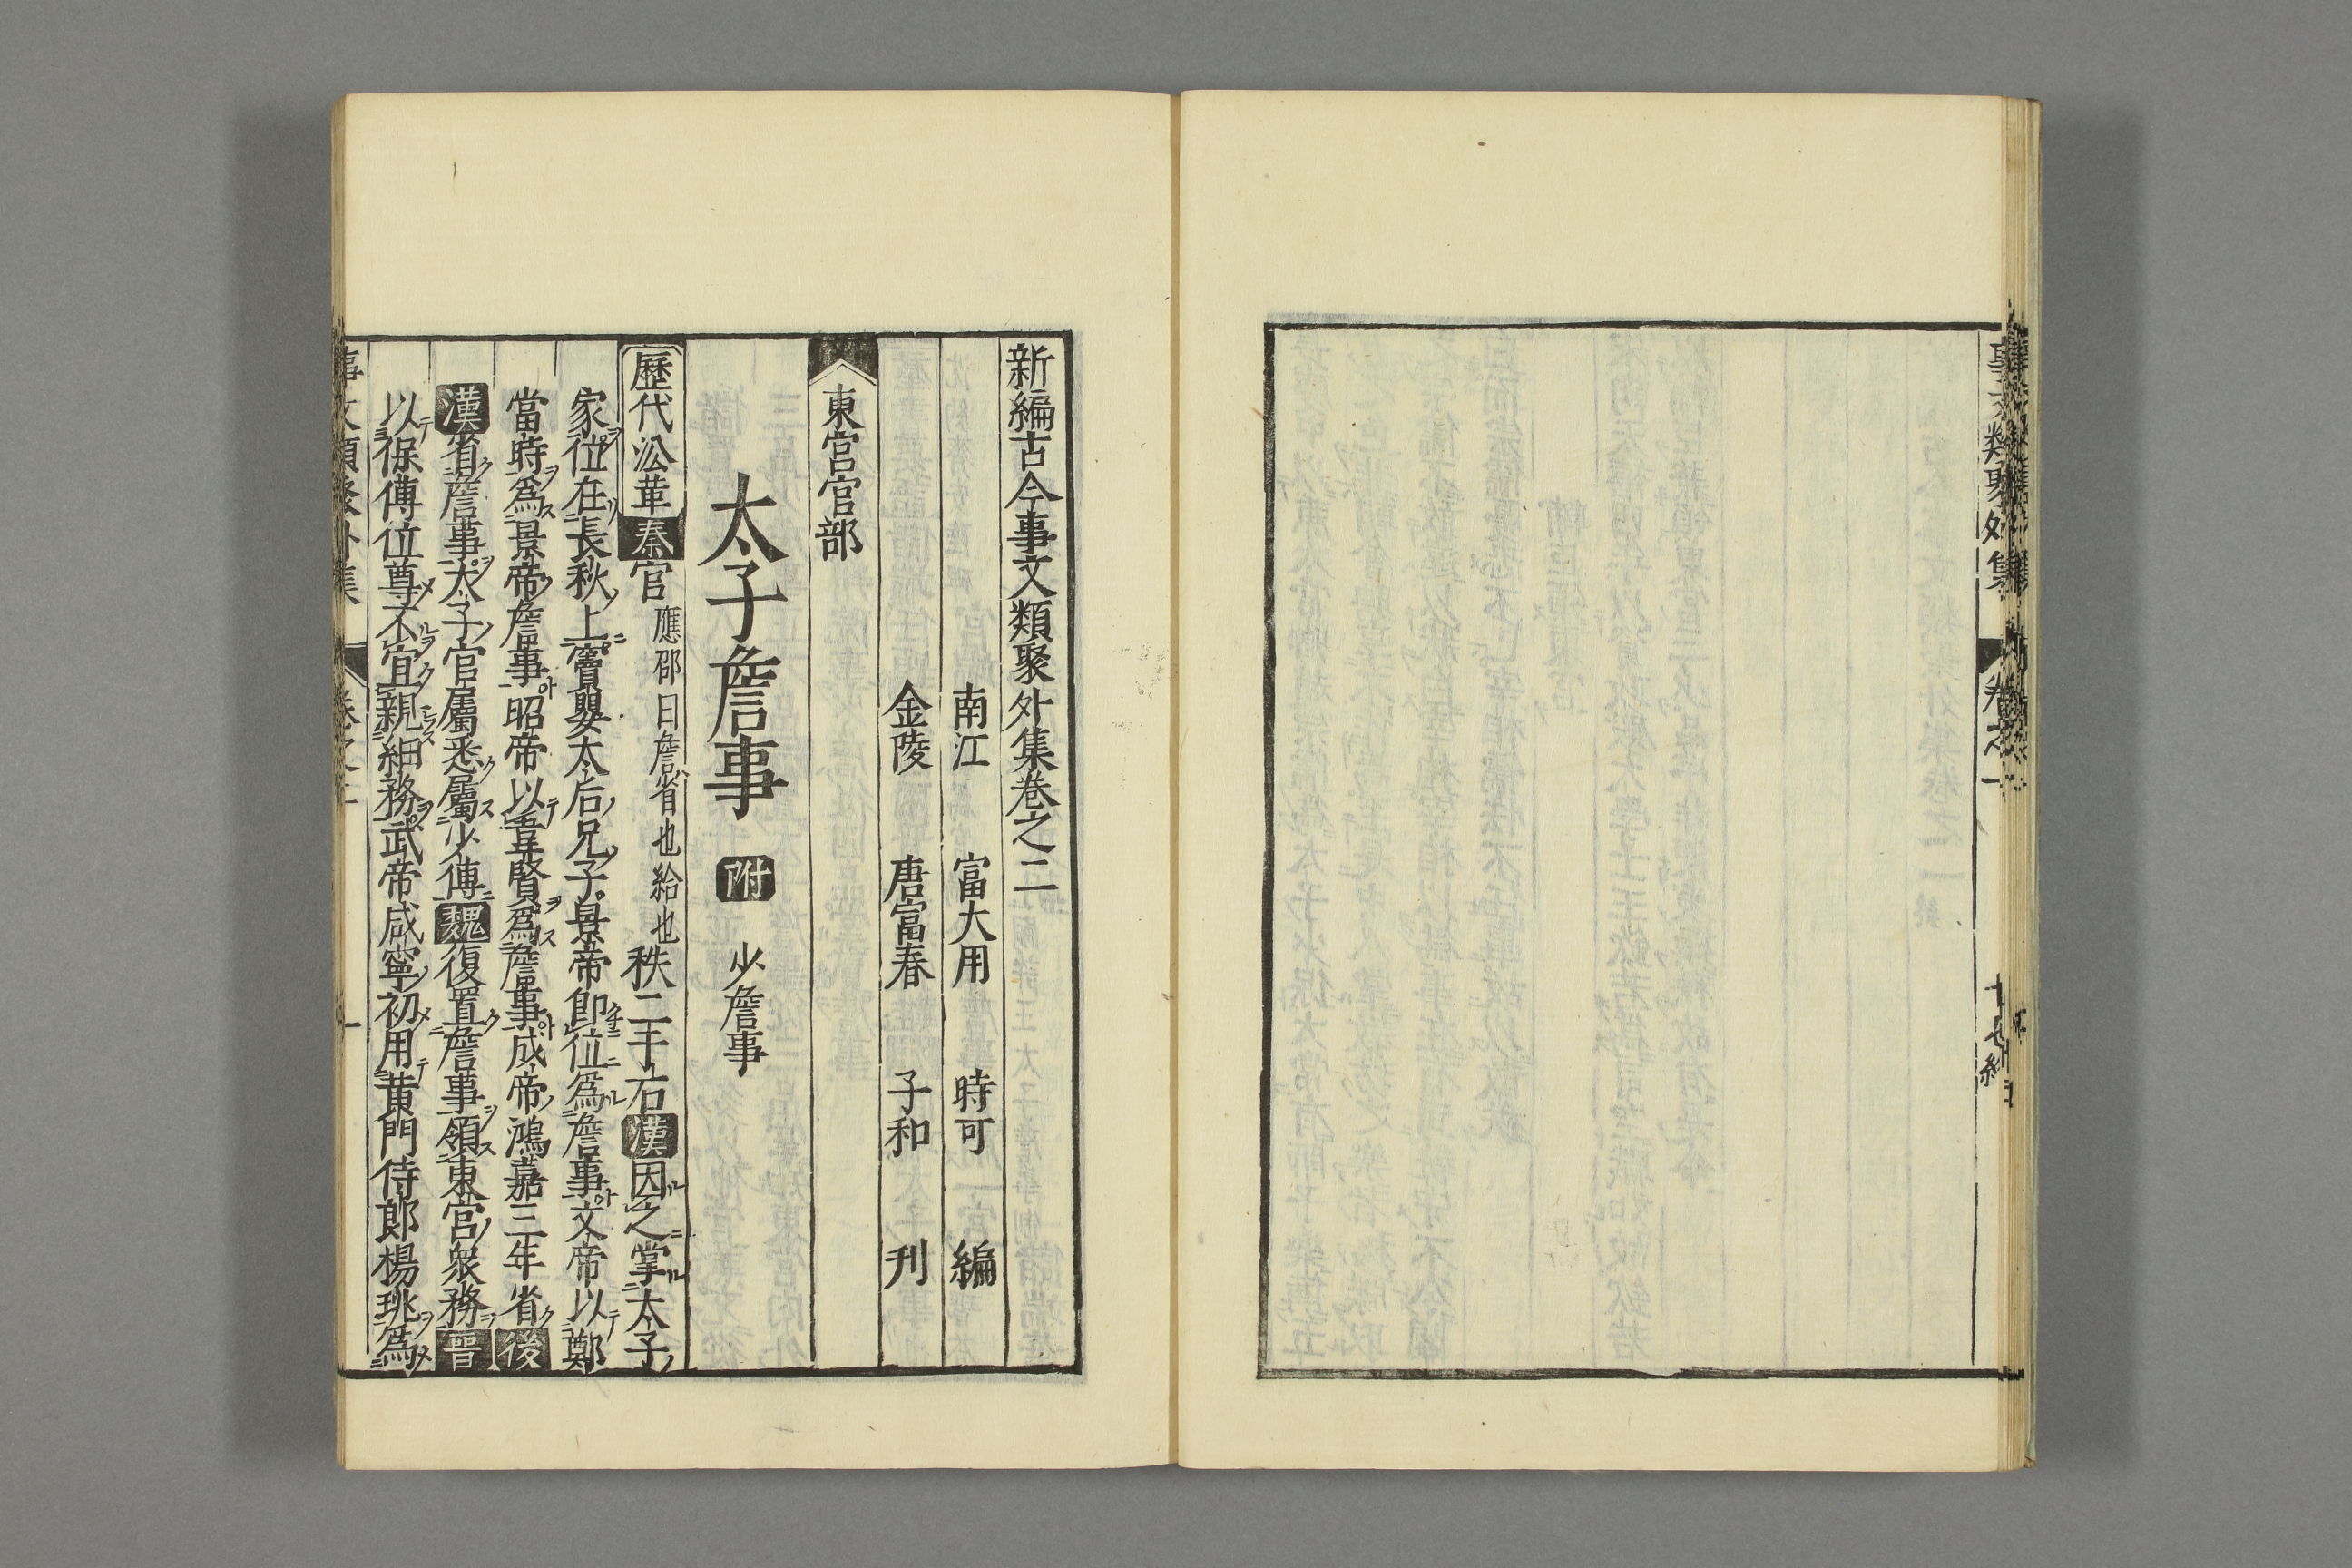 事文類聚外集 卷之一 十七終
新編古今事文類聚外集卷之二
南江 富大用 時可 編
金陵 唐富春 子和 刊
東宮官部
太子詹事 附 少詹事
歷代沿革 秦官 應邵曰詹省也給也 秩二千石 漢因之掌太子
家位在長秋上竇嬰太后兄子景帝即位爲詹事文帝以鄭
當時爲景帝詹事昭帝以韋賢爲詹事成帝鴻嘉三年省 後
漢省詹事太子官屬悉屬少傅 魏復置詹事領東宮衆務 晉
以保傅位尊不宜親細務武帝咸寧初用黃門侍郎楊珧爲
事文類聚外集 卷之二 一